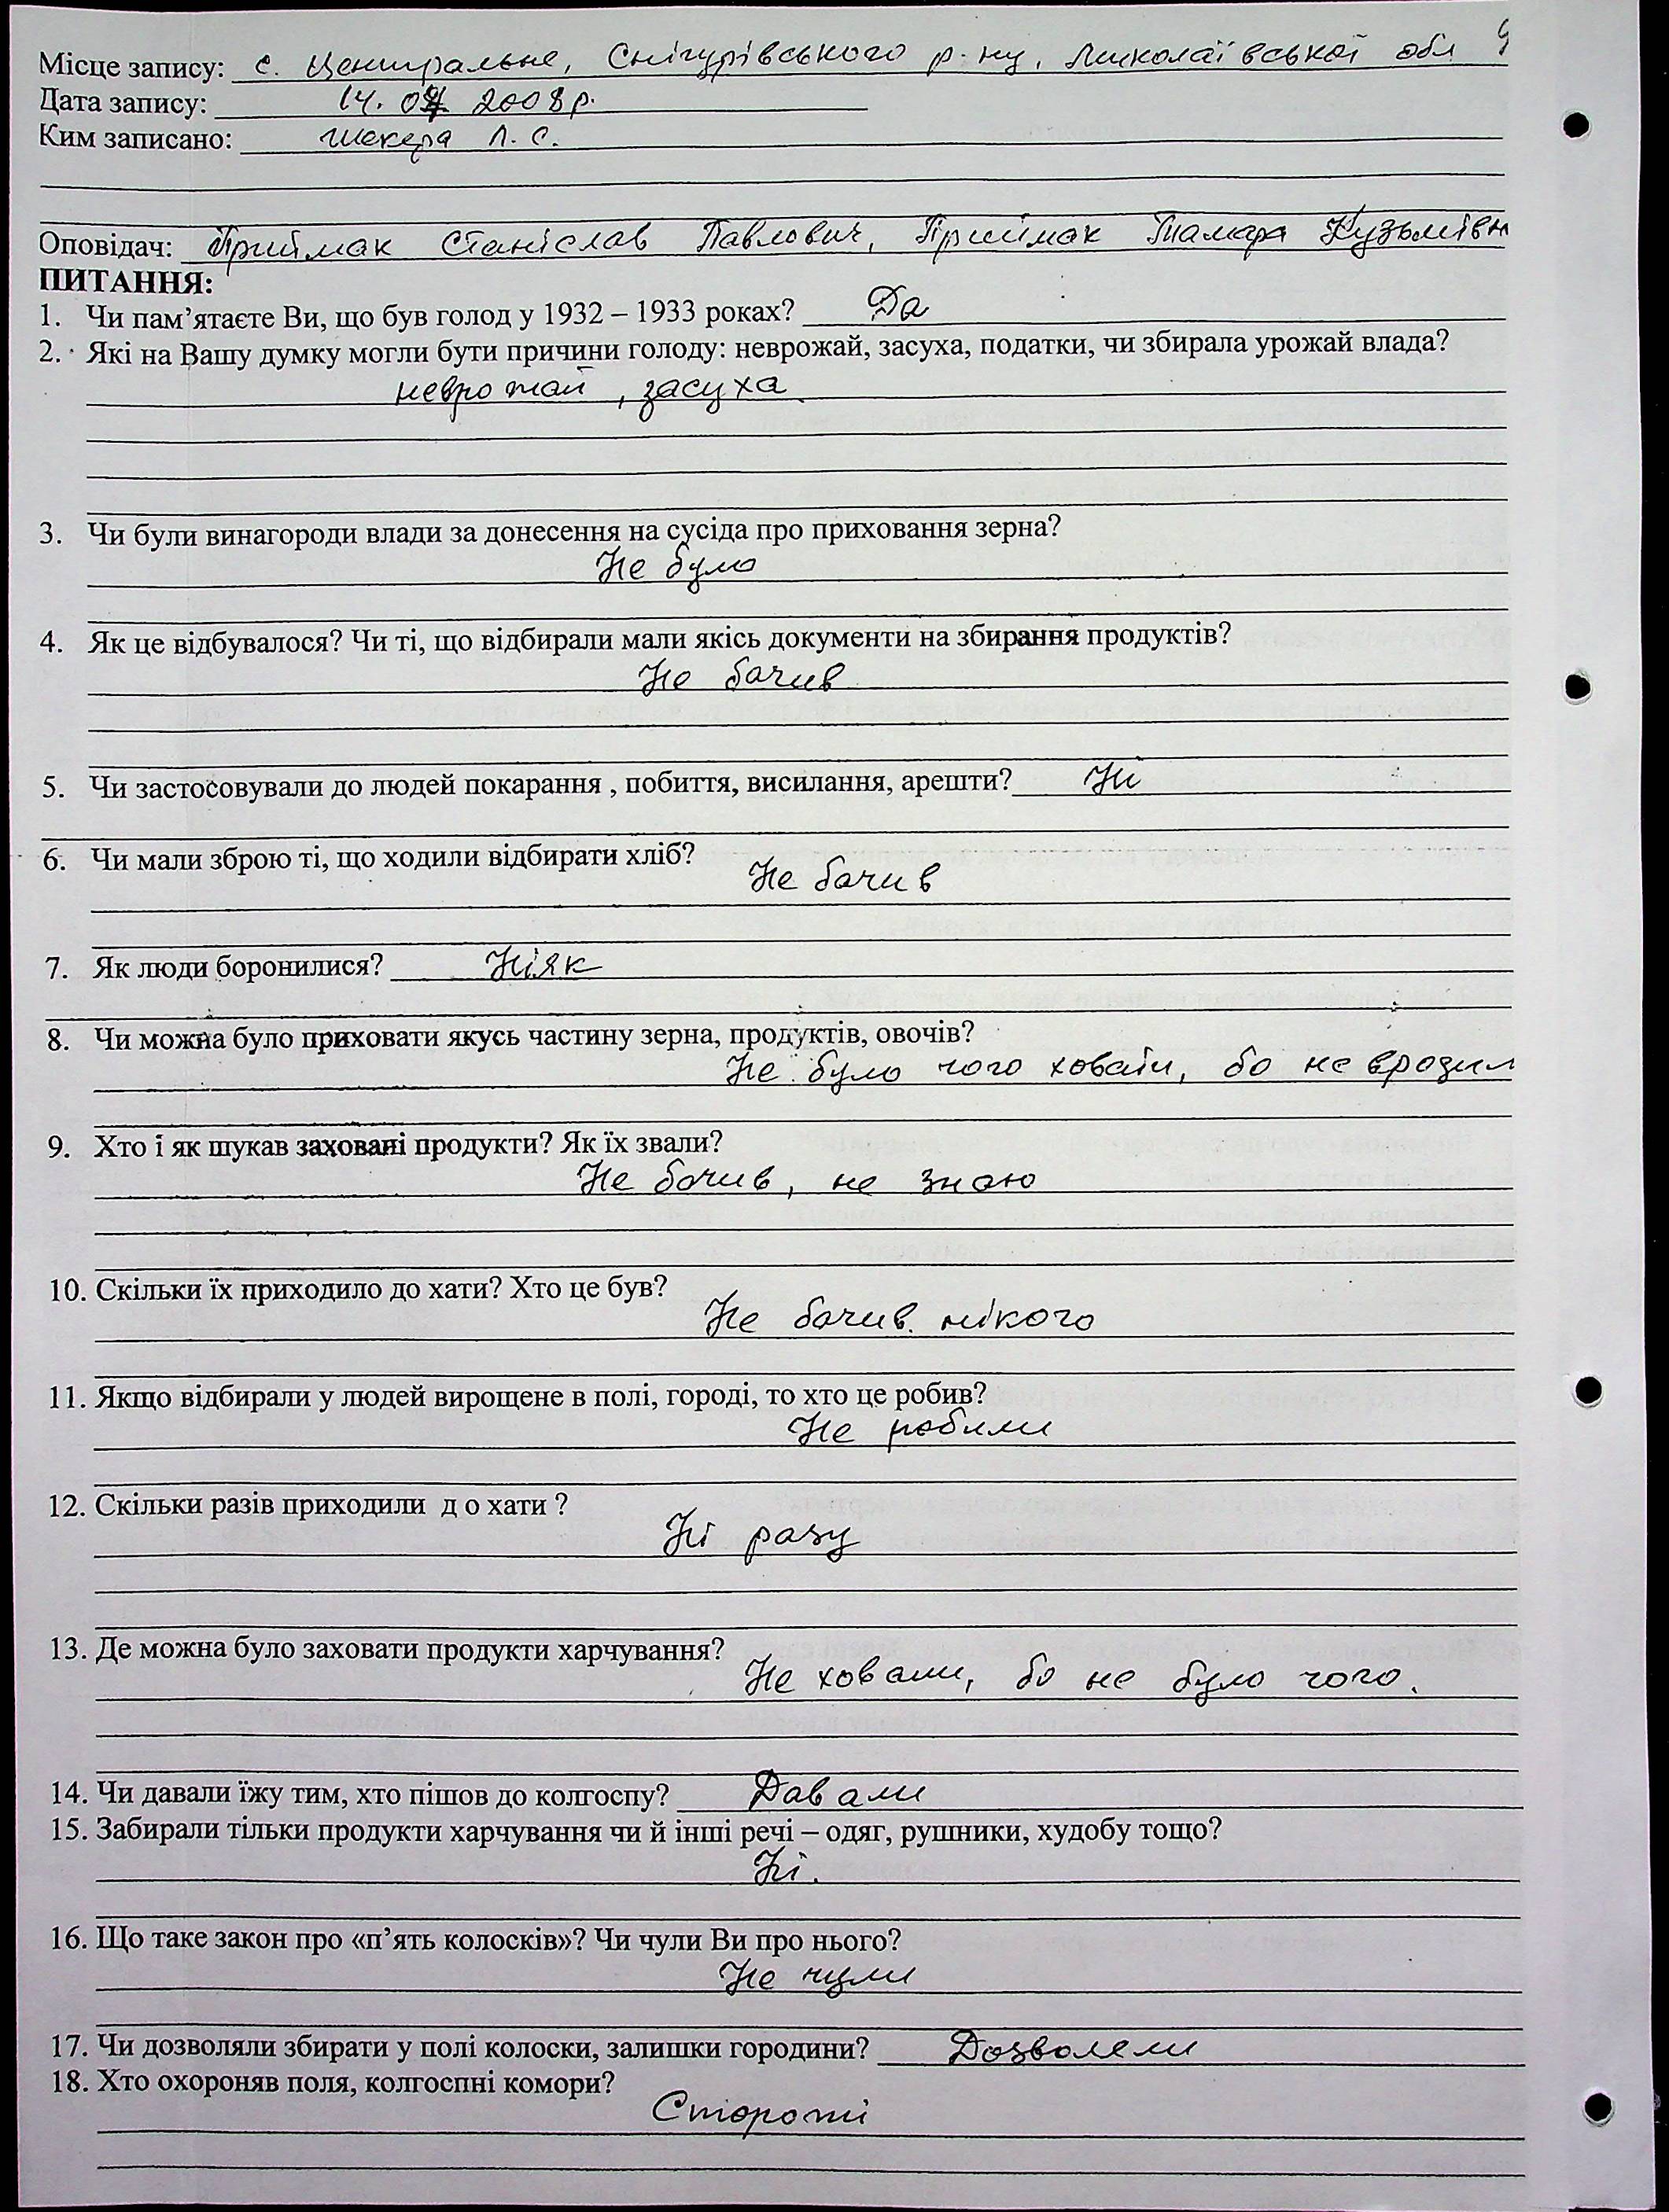 Місце запису: с. Центральне, Снігурівського р-ну, Миколаївської обл
Дата запису: 14. 2008р.
Ким записано: Шекера Л. С.
Оповідач: Приймак Станіслав Павлович, Приймак Тамара Кузьмівн
ПИТАННЯ:
1. Чи пам’ятаєте Ви, що був голод у 1932 – 1933 роках? Да
2. Які на Вашу думку могли бути причини голоду: неврожай, засуха, податки, чи збирала урожай влада?
неврожай, засуха
3. Чи були винагороди влади за донесення на сусіда про приховання зерна?
Не було
4. Як це відбувалося? Чи ті, що відбирали мали якісь документи на збирання продуктів?
Не бачив
5. Чи застосовували до людей покарання , побиття, висилання, арешти? Ні
6. Чи мали зброю ті, що ходили відбирати хліб?
Не бачив
7. Як люди боронилися? Ніяк
8. Чи можна було приховати якусь частину зерна, продуктів, овочів?
Не було чого ховати, бо не вродил
9. Хто і як шукав заховані продукти? Як їх звали?
Не бачив, не знаю
10. Скільки їх приходило до хати? Хто це був?
Не бачив нікого
11. Якщо відбирали у людей вирощене в полі, городі, то хто це робив?
Не робили
12. Скільки разів приходили д о хати ?
Ні разу
13. Де можна було заховати продукти харчування?
Не ховали, бо не було чого.
14. Чи давали їжу тим, хто пішов до колгоспу? Давали
15. Забирали тільки продукти харчування чи й інші речі – одяг, рушники, худобу тощо?
Ні.
16. Що таке закон про «п’ять колосків»? Чи чули Ви про нього?
Не чули
17. Чи дозволяли збирати у полі колоски, залишки городини? Дозволяли
18. Хто охороняв поля, колгоспні комори?
Сторожі